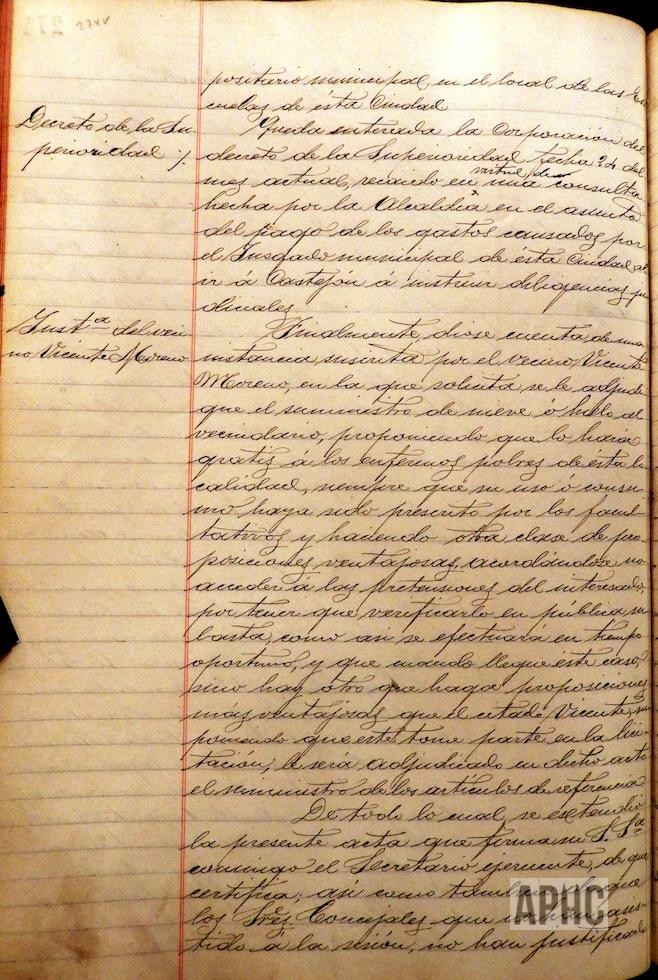 274v
positario municipal, en el local de las Es
cuelas de ésta Ciudad
Decreto de la Su-
perioridad ./.
Queda enterada la Corporación del
decreto de la Superioridad fecha 24 del
mes actual, recaido en virtud de una consulta
hecha por la Alcaldía en el asunto
del pago de los gastos causados por
el Juzgado municipal de ésta Ciudad, al
ir á Castejón á instruir diligencias ju
diciales
Inst.ª del veci
no Vicente Moreno
Finalmente, diose cuenta de una
instancia suscrita por el vecino, Vicente
Moreno, en la que solicita se le adjudi
que el suministro de nieve ó hielo al
vecindario, proponiendo que lo hará
gratis á los enfermos pobres de ésta lo
calidad, siempre que su uso ó consu
mo haya sido prescrito por los facul
tativos y haciendo otra clase de pro
posiciones ventajosas, acordándose no
acceder á las pretensiones del interesado,
por tener que verificarlo en pública su
basta, como asi se efectuará en tiempo
oportuno, y que cuando llegue éste caso,
sino hay otro que haga proposiciones
más ventajosas que el citado Vicente, su
poniendo que éste tome parte en la lici
tación, le será adjudicado en dicho acto
el suministro de los artículos de referencia
De todo lo cual, se extendió
la presente acta que firma su S. Sª
conmigo el Secretario ejerciente, de que
certifica; asi como tambien de que
los Sres. Concejales que no han asis
tido á la sesión, no han justificado
APHC